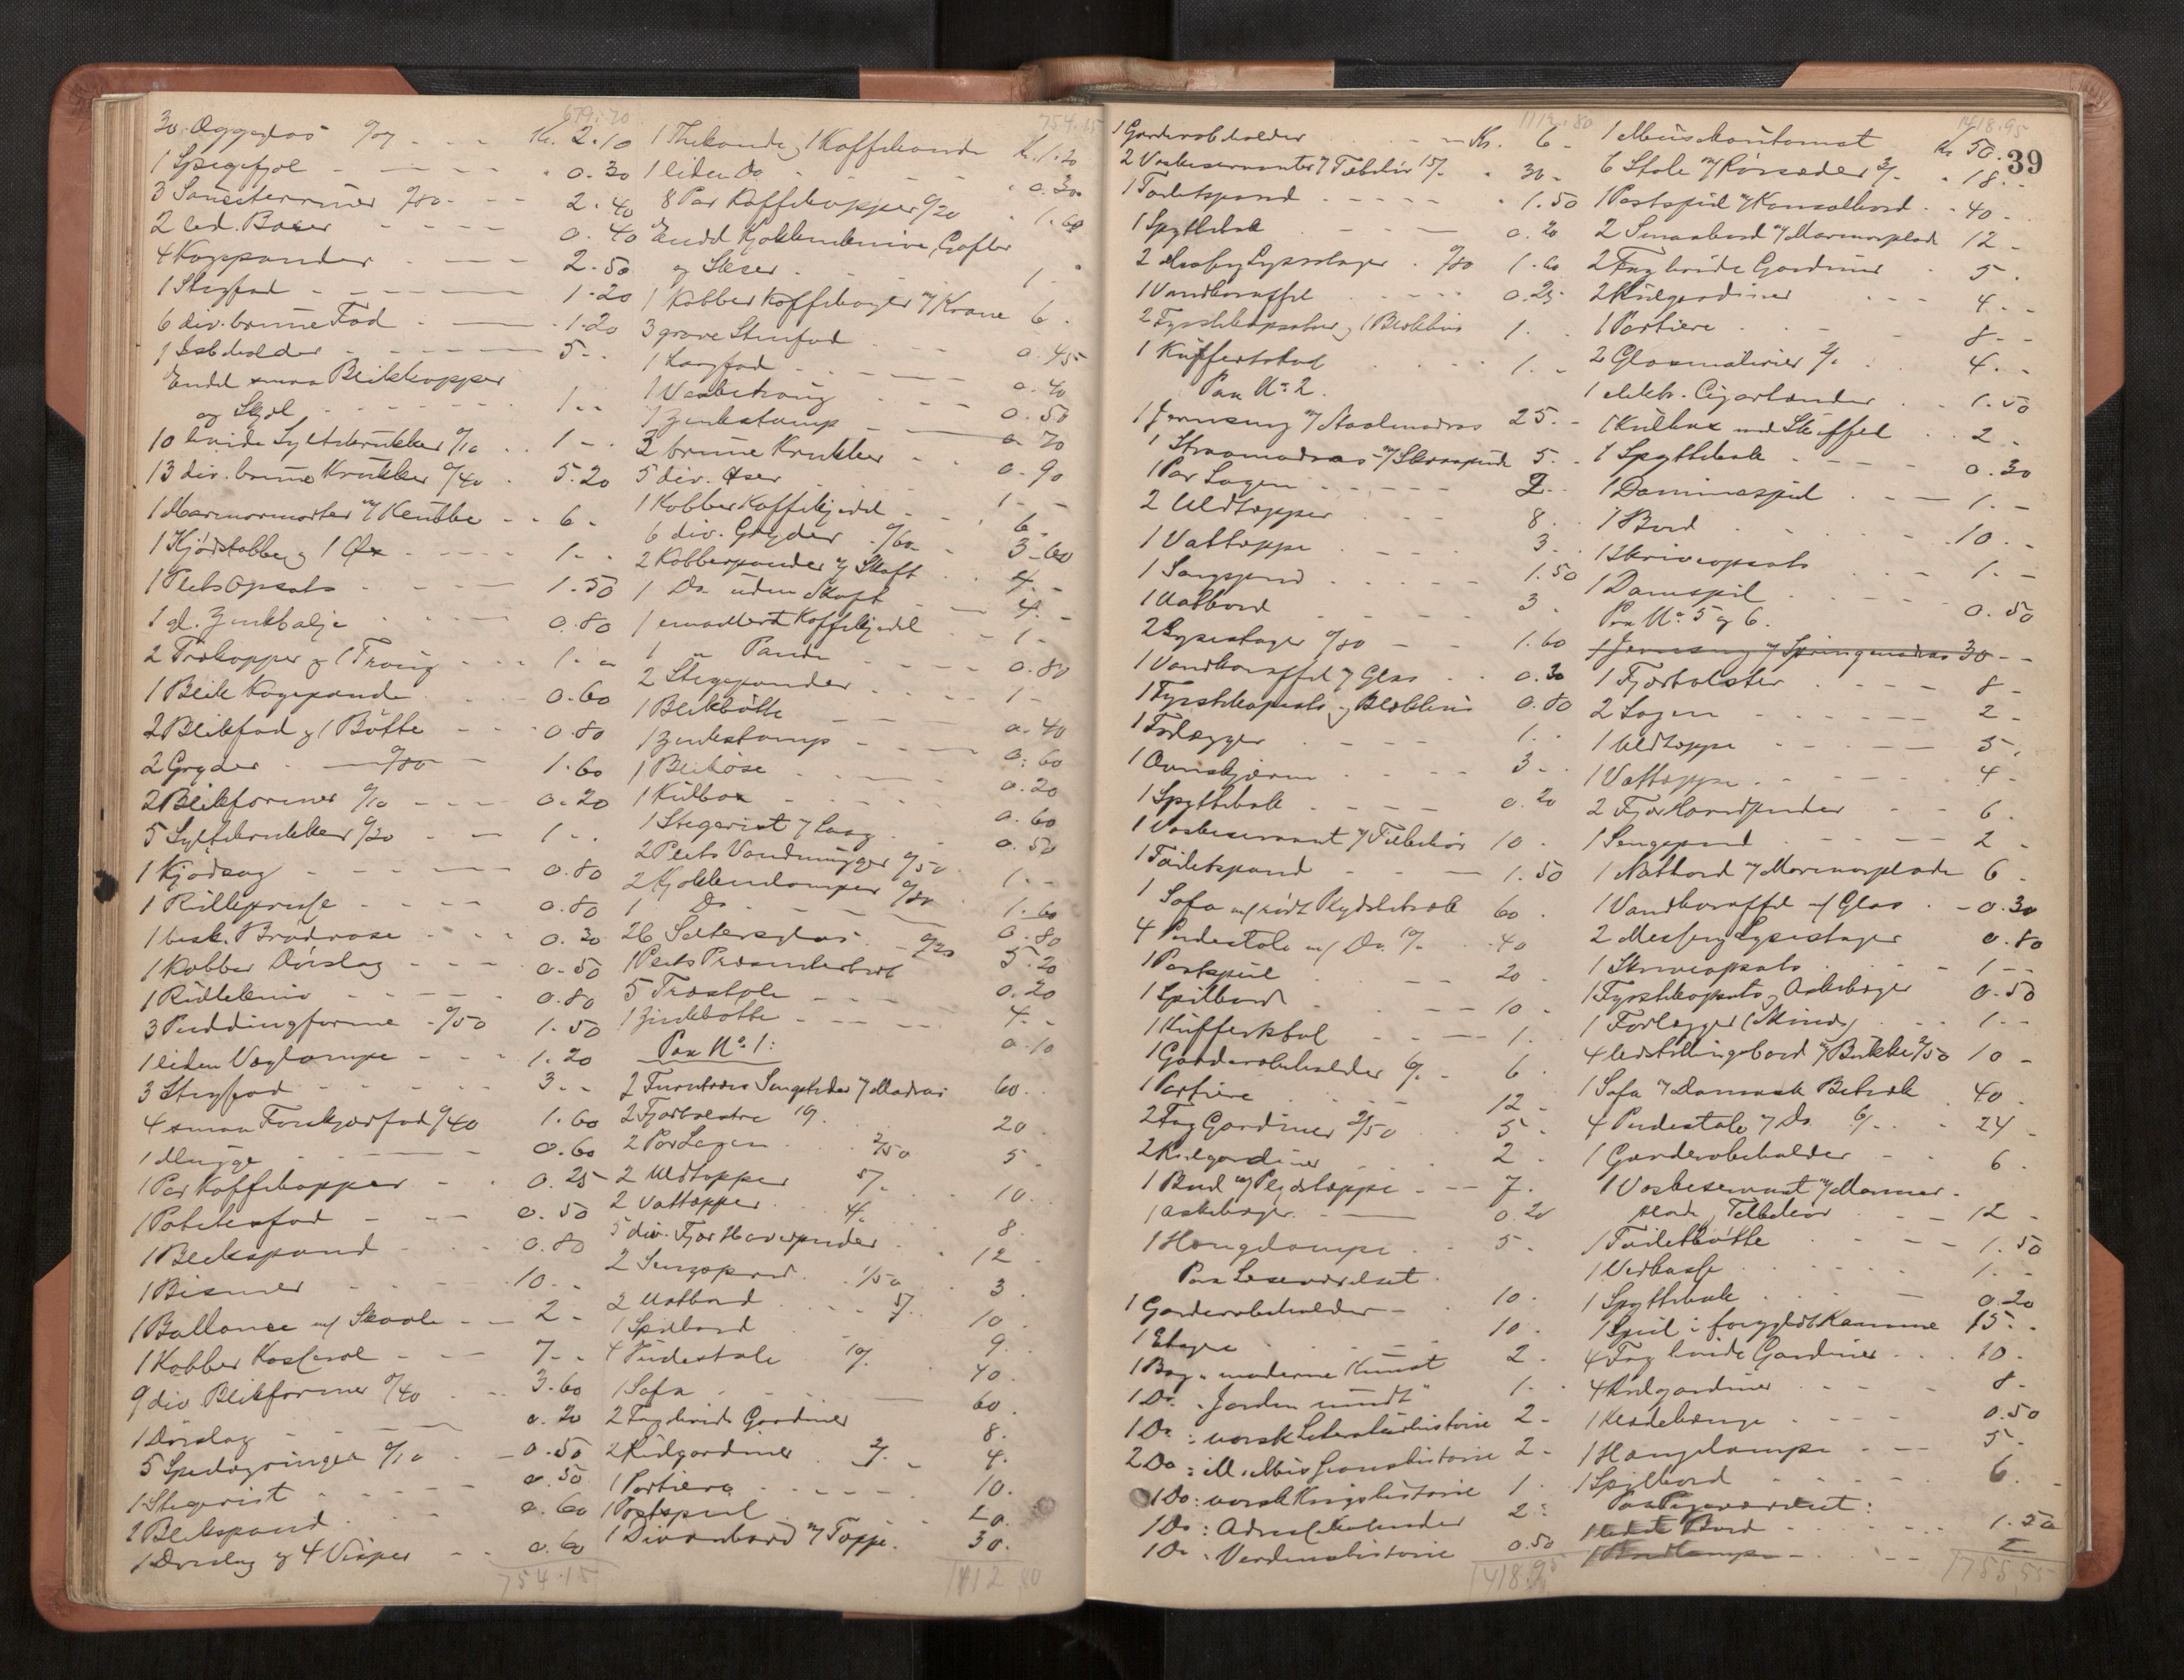 679.70
30 Æggeglas 0/07 - - - Kr. 2.10
1 Spegefjel - - - 0.30
3 Sauseterriner 0/80 - - 2.40
2 led. Baser - - - 0.40
4 Kagpander - - - 2.50
1 Stegfad - - - 1.20
6 div. brune Fad - - 1.20
1 Isbeholder - - - 5 - -
Endel smaa Blikkopper
og Skjel - - - 1 - -
10 hvide Syltekrukker 0/10 - - 1 - -
13 div. brune Krukker 0/40 - 5.20
1 Marmormorter m/ Knubbe - - 6 -
1 Kjødstabbe og 1 Øx - - - 1 - -
1 Pletsopsats - - - 1.50
1 gl. Zinkbalje - - - 0.80
2 Trækopper og 1 Traug - - - 1 - -
1 Blik Kagepande - - 0.60
2 Blikfad og 1 Bøtte - - 0.80
2 Gryder - 0/80 - 1.60
2 Blikformer 0/10 - - - 0.20
5 Syltekrukker 0/20 - - 1 - .
1 Kjødsag - - - 0.80
1 Rullepresse - - - 0.80
1 besk. Brødrase - - - 0.30
1 Kobber Dørslag - - - 0.50
1 Rullekniv - - - 0.80
3 Puddingforme - 0/50 1.50
1 liden Væglampe - - - 1.20
3 Stegfad - - - 3 - -
4 smaa Forskjærfad 0/40 1.60
1 Mugge - - - 0.60
1 Par Kaffekopper - - 0.25
1 Potetesfad - - - 0.50
1 Blikspand - - - 0.80
1 Bismer - - - 10 - .
1 Ballance m/ Skaale - - 2 -
1 Kobber Kasserol - - - 7 - -
9 div Blikformer 0/40 - - 3.60
1 Dørslag - - - 0.20
5 Speilægringer 0/10 - 0.50
1 Stegerist - - - 0.50
2 Blikspand - - - 0.60
1 Dørslag og 4 Visper - - 0.60
754.15
754.15
1 Thekande og 1 Kaffekande Kr. 1.20
1 liden Do - - - 0.30
8 Par Kaffekopper 0/20 - 1.60
Endel Kjøkkenknive, Gafler
og Skeer - - - 1 -
1 Kobber Kaffekoger m/ Krane 6 .
3 graae Stenfad - - 0.45
1 Langfad - - - 0.40
1 Vasketraug - - - 0.50
1 Zinkstamp - - 0.70
3 brune Krukker - - 0.90
5 div. Øser - - - 1 - -
1 Kobber Kaffekjedel - - - 6 -
6 div. Gryder 0/60 - - 3.60
2 Kobberpander m/ Skaft - 4 . -
1 Do uden Skaft - - 4 . -
1 emailleret Kaffekjedel - - 1 -
1 " Pande - - - 0.80
2 Stegepander - - - 1 -
1 Blikbøtte - - - 0.40
1 Zinkstamp - - - 0.60
1 Blikøse - - - 0.20
1 Kulbox - - - 0.60
1 Stegerist m/ Laag - - 0.50
2 Plets Vandmugger 0/50 - 1 . -
2 Kjøkkenlamper 0/80 - 1.60
1 Do - - - 0.80
26 Seltersglas - 0/20 5.20
1 Plets Præsenterbret 0.20
5 Træstole - - - 4 . -
1 Zinkbøtte - - - 0.10
Paa No 1:
2 Furutræes Sengesteder m/ Madras 60 . .
2 Fjærbolstre 10/ . 20
2 Par Lagen . 2/50 5 -
2 Uldtæpper 5/. . 10 .
2 Vattæpper . 4/. . 8 .
5 div. Fjær Hovedpuder - 12 .
2 Sengspand . 1/50 . 3 .
2 Natbord . . . 5/. 10 .
1 Spilbord - - - 9 .
4 Pudestole 10/. - 40 .
1 Sofa - - - 60 .
2 Fag hvide Gardiner 8 .
2 Rulgardiner . 2/. - 4 .
1 Portiere - - - 10 .
1 Postspeil - - - 20 .
1 Divanbord m/ Tæppe . 30 .
1112.80
1112.80
1 Garderobeholder - - - Kr. 6 -
2 Vaskeservanter m/ Tilbehør 15/. - 30 -
1 Toiletspand - - - 1.50
1 Spyttebak - - - 0.20
2 Messing Lysestager . 0/80 1.60
1 Vandkaraffel - - - 0.25
2 Fyrstikopsatser og 1 Blækhus 1 . -
1 Kuffertstol . . . 1 . -
Paa No 2.
1 Jernseng m/ Staalmadras 25 . -
1 Straamadras m/ Skraapude 5 . -
1 Par Lagen - - - 2 . .
2 Uldtæpper . . . 8 .
1 Vattæppe . - - - 3 . .
1 Sengspand - - - 1.50
1 Natbord - - - 3 .
2 Lysestager 0/80 - - 1.60
1 Vandkaraffel m/ Glas . . 0.30
1 Fyrstikopsats og Blækhus 0.80
1 Forlægger - - - 1 . .
1 Ovnskjærm - - - 3 - .
1 Spyttebak - - - 0.20
1 Vaskeservant m/ Tilbehør 10 .
1 Toiletspand - - - 1.50
1 Sofa m/ rødt Plydsbetræk 60 .
4 Pudestole m/ Do. 10/. . 40
1 Postspeil . - - 20
1 Spilbord - - - 10 .
1 Kuffertstol - - - 1 .
1 Garderobeholder 6/. - 6 .
1 Portiere . . . 12 -
2 Fag Gardiner 2/50 . 5 .
2 Rulgardiner . . . 2 .
1 Bord m/ Plydstæppe - - - 7 .
1 Askebæger - - 0.20
1 Hængelampe - - 5 .
Paa Læseværelset.
1 Garderobeholder - . 10 .
1 Etagere - - - 10 .
1 Bog "moderne Kunst 2 .
1 Do. "Jorden rundt" 1 .
1 Do : norsk Literaturhistorie 2 -
2 Do : Ill. Missionshistorie 2 -
1 Do : norsk Krigshistorie 1 .
1 Do : Adressekalender 2 :
1 Do : Verdenshistorie 0.50
1418.95
1418.95
39
1 Musikautomat Kr 50 . -
6 Stole m/ Rørsæder 3/. - 18 . -
1 Postspeil m/ Konsolbord . - 40 -
2 Smaabord m/ Marmorplade 12 -
2 Fag hvide Gardiner . 5 .
2 Rulgardiner - - - 4 . -
1 Portiere . . - - 8 - -
2 Glasmalerier 2/. . 4 . -
1 elektr. Cigartænder . . 1.50
1 Kulbox med Skuffel . . 2 -
1 Spyttebak - - - 0.30
1 Dominospil . - - 1 . -
1 Bord . . - - 10 . -
1 Skriveopsats - - 1 . -
1 Damspil - - - 0.50
Paa No 5 og 6.
1 Jernseng m/ Springmadras 30 - -
1 Fjærbolster - - - 8 -
2 Lagen - - - 2 -
1 Uldtæppe - - - 5 .
1 Vattæppe - - - 4 -
2 Fjær Hovedpuder - - 6 .
1 Sengspand - - - 2 -
1 Natbord m/ Marmorplade 6 .
1 Vandkaraffel m/ Glas . - 0.30
2 Messing Lysestager 0.80
1 Skriveopsats . - - 1 - -
1 Fyrstikopsats og Askebæger 0.50
1 Forlægger (Skind) . . 1 - -
4 Udstillingsbord m/ Bukke 2/50 10 -
1 Sofa m/ Damask Betræk 40 .
4 Pudestole m/ Do. 6/. . 24 -
1 Garderobeholder - - 6 .
1 Vaskeservant m/ Marmor-
plade, Tilbehør . - - 12 -
1 Toiletbøtte - - - 1.50
1 Vedkasse . . . 1 . -
1 Spyttebak - - - 0.20
1 Speil i forgyldt Ramme 15 . -
4 Fag hvide Gardiner . . . 10 .
4 Rulgardiner - - - 8 -
1 Klædehænge - - - 0.50
1 Hængelampe - - - 5 -
1 Spilbord - - - 6 .
Paa Pigeværelset:
1 Bord - - - 1.50
1 Bordlampe - - -
1755.55